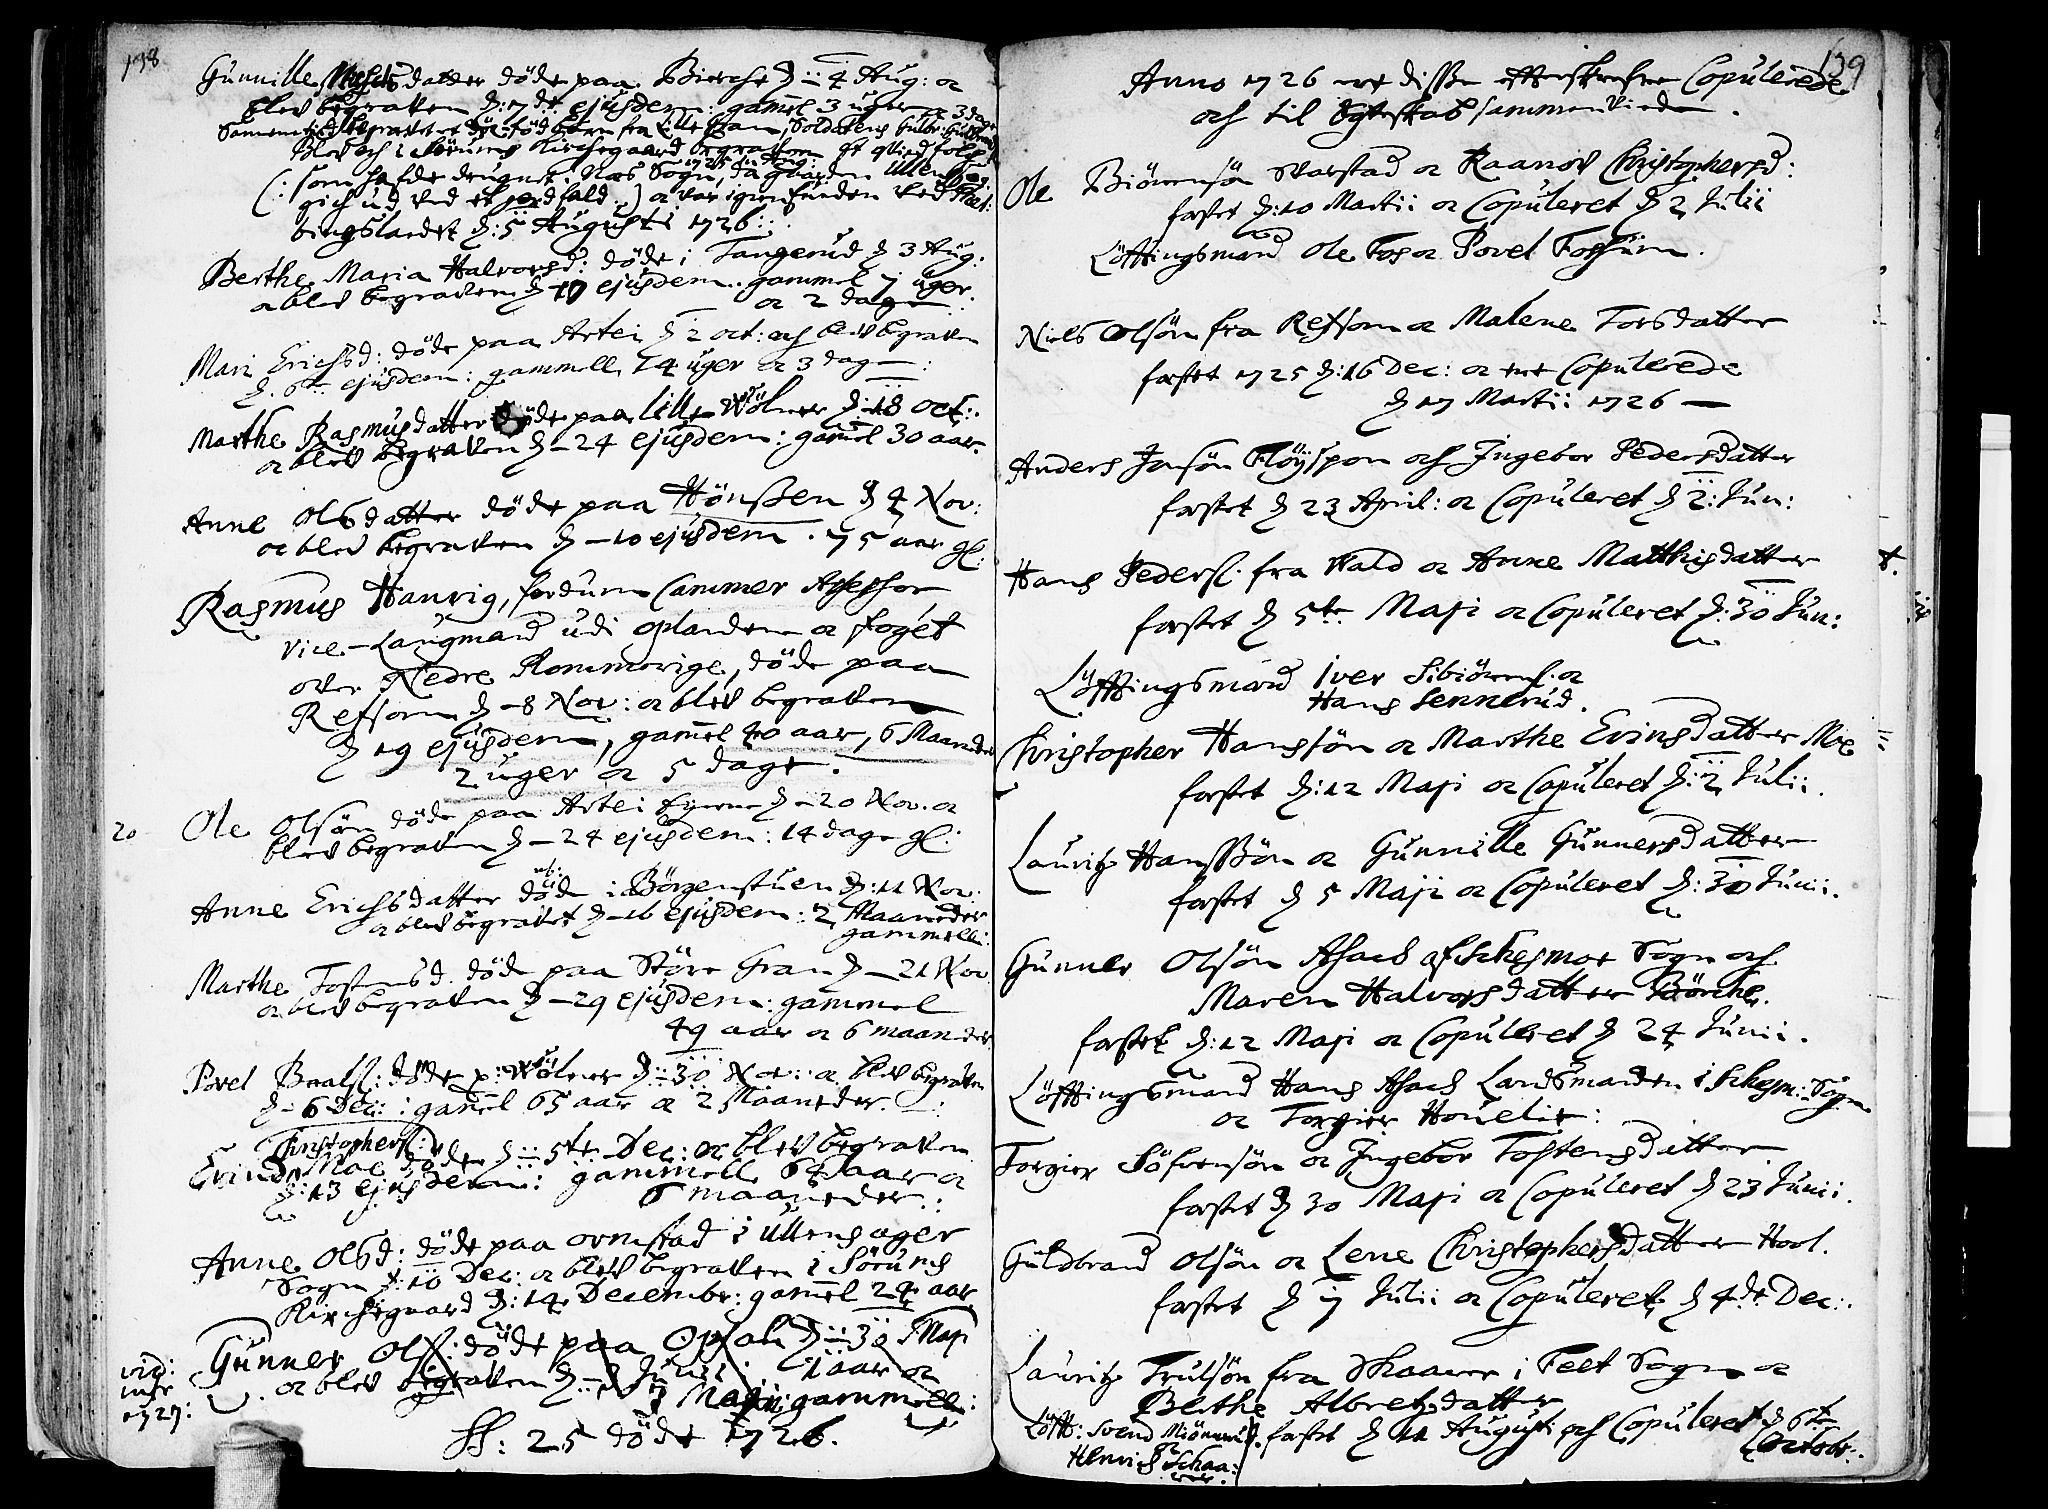 138
Gunnille Nielsdatter döde paa Bierche d: 4 Aug: oc
blev begraven d: 7de ejusdem: gamel 3 uger oc 3 dage
Samme tid begravet et död-föd barn fra Lille Fram, Soldatens
Blev och i Sörums Kirchegaard begraven et qvindfolch
(: som hafde i Næs Sogn, da gaarden Ullens
gich ud ved et jordfald :) oc var igienfunden ved
bingslandet d: 5 Augusti 1726:
Berthe Maria Halvorsd: döde i Tangerud d 3 Aug:
oc blev begraven d 10 ejusdem. gammel 7 uger
oc 2 dage
Mari Erichsd: döde paa Artei d 2 oct: och blev begraven
d. 6te ejusdem: gammell 14 uger oc 3 dage
Marthe Rasmusdatter döde paa lille Wölner d: 18 oct:
oc blev begraven d 24 ejusdem: gamel 30 aar.
Anne Olsdatter döde paa Hönssen d 4 Nov:
oc blev begraven d 10 ejusdem. 75 aar gl:
Rasmus Hanvig, fordum Cammer Assessor
Vice-Laugmand udi oplandene oc foget
over Nedre Rommerige, döde paa
Refsom d 8 Nov: oc blev begraven
d 19 ejusdem, gamel 40 aar, 6 Maaneder
2 uger oc 5 dage.
20 Ole Olsön döde paa Artei Eyerne d 20 Nov. oc
blev begraven d 24 ejusdem: 14 dage gl:
Anne Erichsdatter döde i Börgenstuen d: 11 Nov:
oc blev begravet d 16 ejusdem: 2 Maaneder
gammell:
Marthe Tostensd. döde paa Störe Fran d 21 Nov
oc blev begraven d 29 ejusdem: gammel
49 aar oc 6 maaneder
Povel Baals: döde p: Wölner d: 30 Nov: oc blev begraven
d 6 Dec: gamel 65 aar oc 2 Maaneder.
Christophers:
Erind Moe döde d: 5te Dec: oc blev begraven
d: 13 ejusdem: gammell 64 aar oc
6 maaneder:
Anne Olsd: döde paa ormstad i Ullensager
Sogn d: 10 Dec: oc blev begraven i Sörums
Kirchegaard d: 14 Decembr: gamel 24 aar
vid: Gunner Ols: döde paa Opsah d: 30 Maji
oc blev begraven d Junii 1 aar oc
1727: 7 Maji gammell:
SS: 25 döde 1726.
139
Anno 1726 ere disse efterskrefne Copulerede
och til Egteskab sammenviede.
Ole Biörensön Vorstad oc Raanov Christophersd:
fæstet d: 10 Martii oc Copuleret d 2 Julii
Löfftingsmænd Ole Fos oc Povel Fossum.
Niels Olsön fra Refsom oc Malene Torsdatter
fæstet 1725 d: 16 Dec: oc ere Copulerede
d 17 Martii 1726
Anders Jonsön Flöyspon och Ingebor Pedersdatter
fæstet d 23 April: oc Copuleret d 2: Jun:
Hans Peders. fra Vald oc Anne Matthisdatter
fæstet d 5te Maji oc Copuleret d: 30 Jun:
Löfftingsmænd Iver Sibiörens. oc
Hans Sennerud.
Christopher Hansön oc Marthe Erinsdatter Moe
fæstet d: 12 Maji oc Copuleret d: 2 Julii.
Lauritz Hanssön oc Gunnille Gunnersdatter
fæstet d 5 Maji oc Copuleret d: 30 Junii.
Gunner Olsön Asach af Schesmoe Sogn och
Maren Halvorsdatter Börche.
fæstet d: 12 Maji oc Copulleret d 24 Junii.
Löfftingsmænd Hans Asach Landsmanden i Schesm: Sogn
oc Torgier Hovelie:
Torgier Söfrensön oc Ingebor Tostensdatter
fæstet d 30 Maji oc Copuleret d 23 Junii.
Guldbrand Olsön oc Lene Christophersdatter Hool.
fæstet d 7 Julii oc Copuleret d 4de Dec:
Lauritz Trulsön fra Skaarer i Feet Sogn oc
Blethe Albretzdatter
Löfft: Svend fæstet d 11 Augusti och Copuleret d 6te
Henrich Schaa: Octobr:
rer.